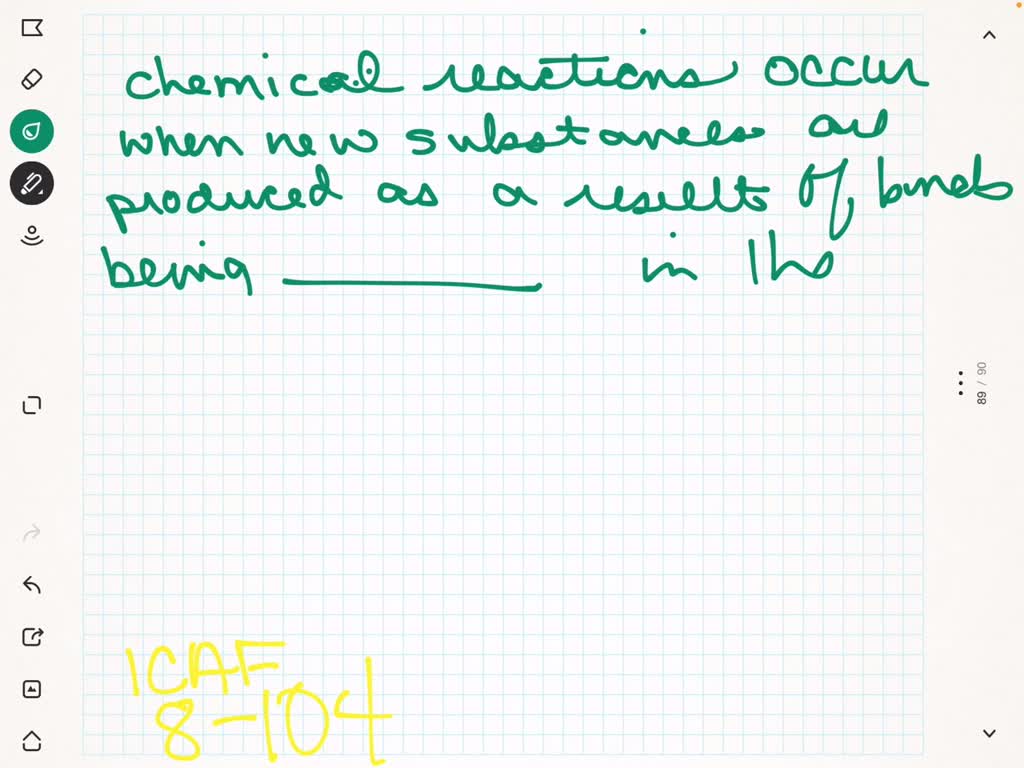 chemical reactions occur
when new substances are
produced as a result of bonds
being __________ in the
ICAF
8-104
89 / 90